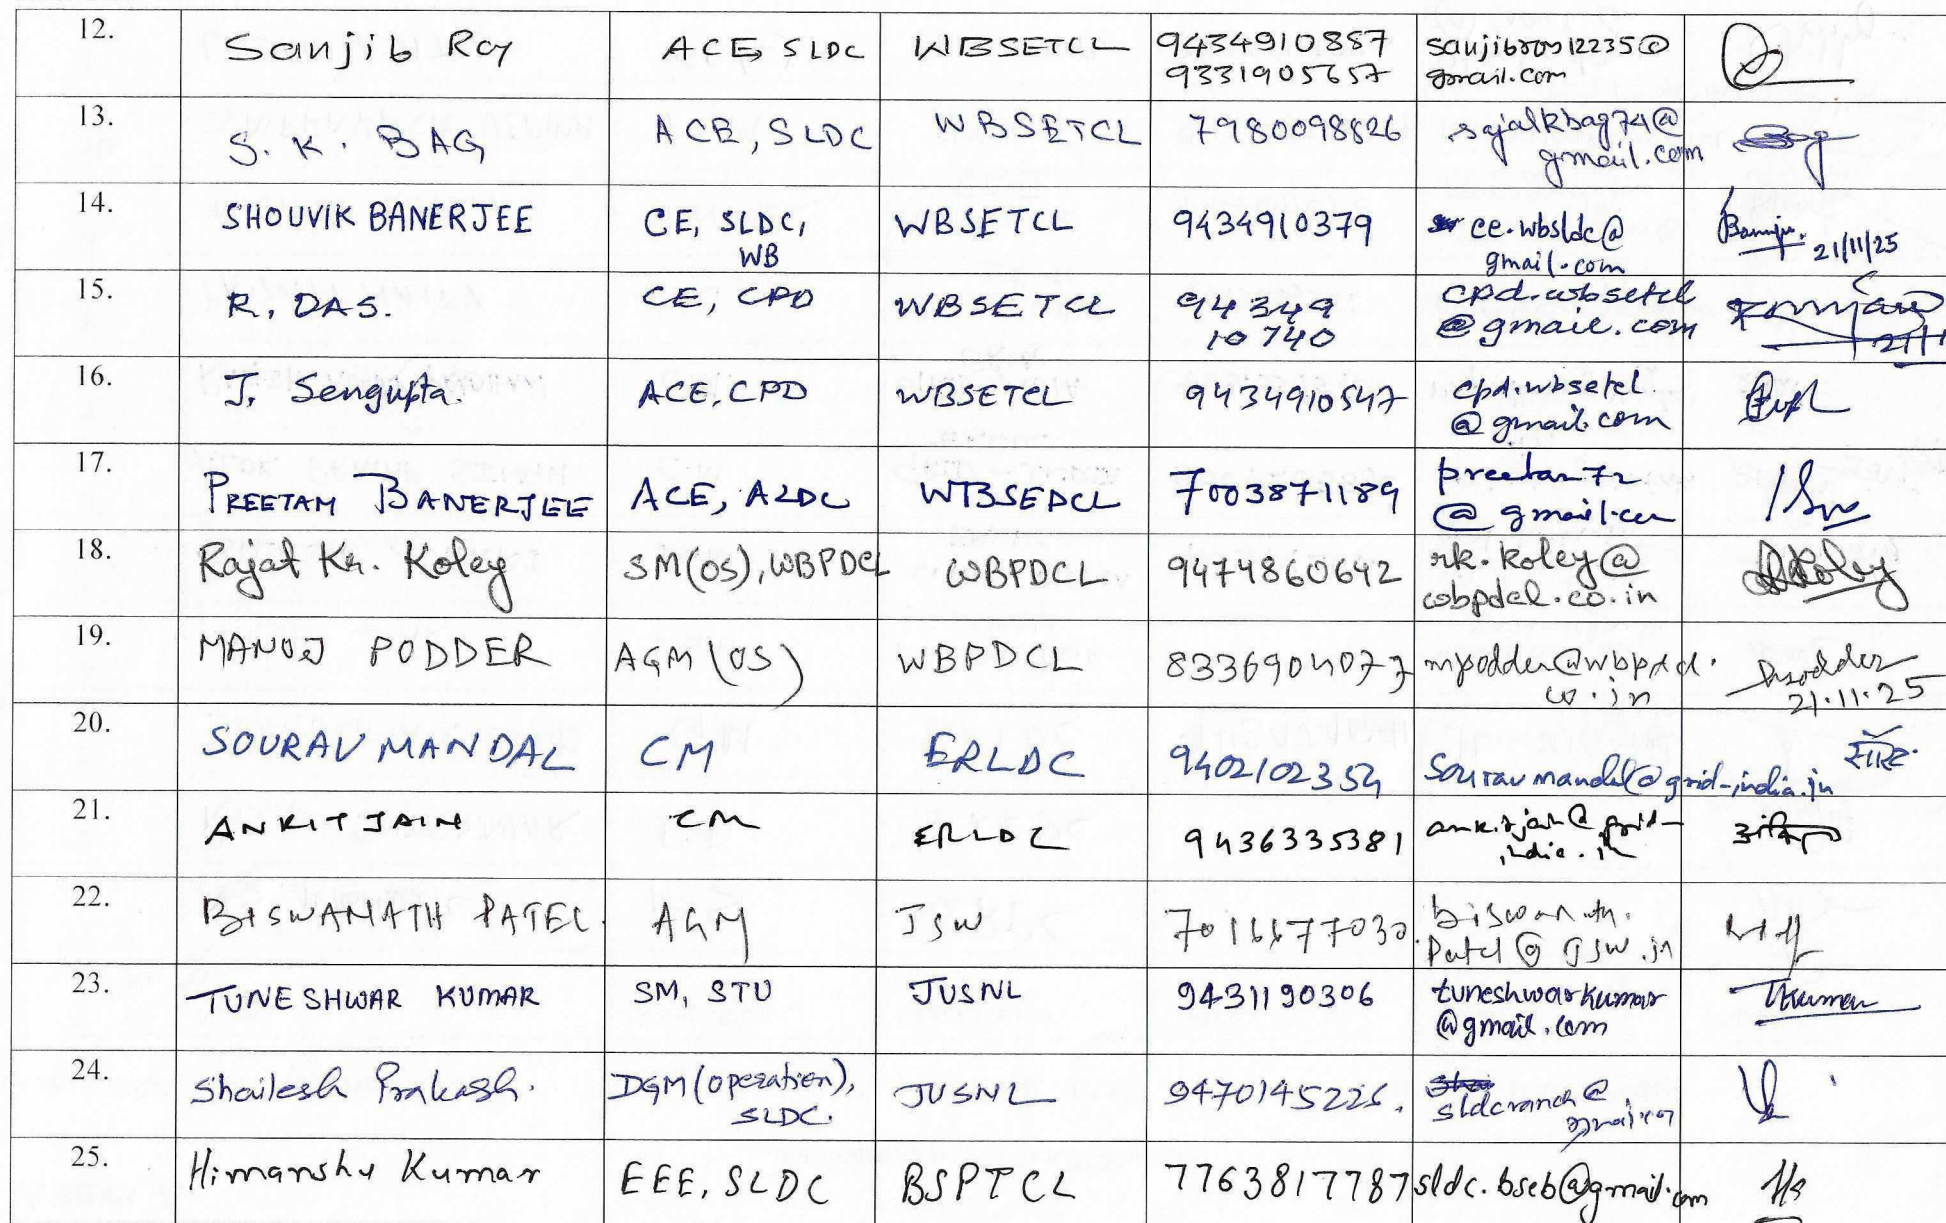 12. Sanjib Roy ACE, SLDC WBSETCL 9434910887
9331905657 sanjibroy12235@
gmail.com
13. S. K. BAG ACE, SLDC WBSETCL 7980098826 sajalkbag74@
gmail.com
14. SHOUVIK BANERJEE CE, SLDC,
WB WBSETCL 9434910379 ce.wbsldc@
gmail.com 21/11/25
15. R. DAS. CE, CPD WBSETCL 94349
10740 cpd.wbsetcl
@gmail.com
16. J. Sengupta. ACE, CPD WBSETCL 9434910547 cpd.wbsetcl
@gmail.com
17. PREETAM BANERJEE ACE, ALDC WBSEDCL 7003871189 preetam72
@gmail.com
18. Rajat Kr. Koley SM(OS), WBPDCL WBPDCL 9474860642 rk.koley@
wbpdcl.co.in
19. MANOJ PODDER AGM (OS) WBPDCL 8336904077 mpodder@wbpdcl.
co.in Podder
21.11.25
20. SOURAV MANDAL CM ERLDC 9402102354 souravmandal@grid-india.in
21. ANKIT JAIN CM ERLDC 9436335381 ankitjain@grid-
india.in
22. BISWANATH PATEL. AGM JSW biswanath.
patel@jsw.in
23. TUNESHWAR KUMAR SM, STU JUSNL 9431190306 tuneshwarkumar
@gmail.com TKumar
24. Shailesh Prakash. DGM (operation),
SLDC. JUSNL 9470145226. sldcranchi@
gmail.com
25. Himanshu Kumar EEE, SLDC BSPTCL 7763817787 sldc.bseb@gmail.com